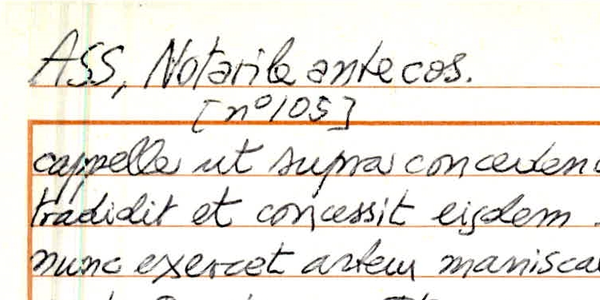 ASS, Notarile antecos.
[n° 105]
cappelle ut supra conceden
tradidit et concessit eisdem
nunc exercet artem manisca